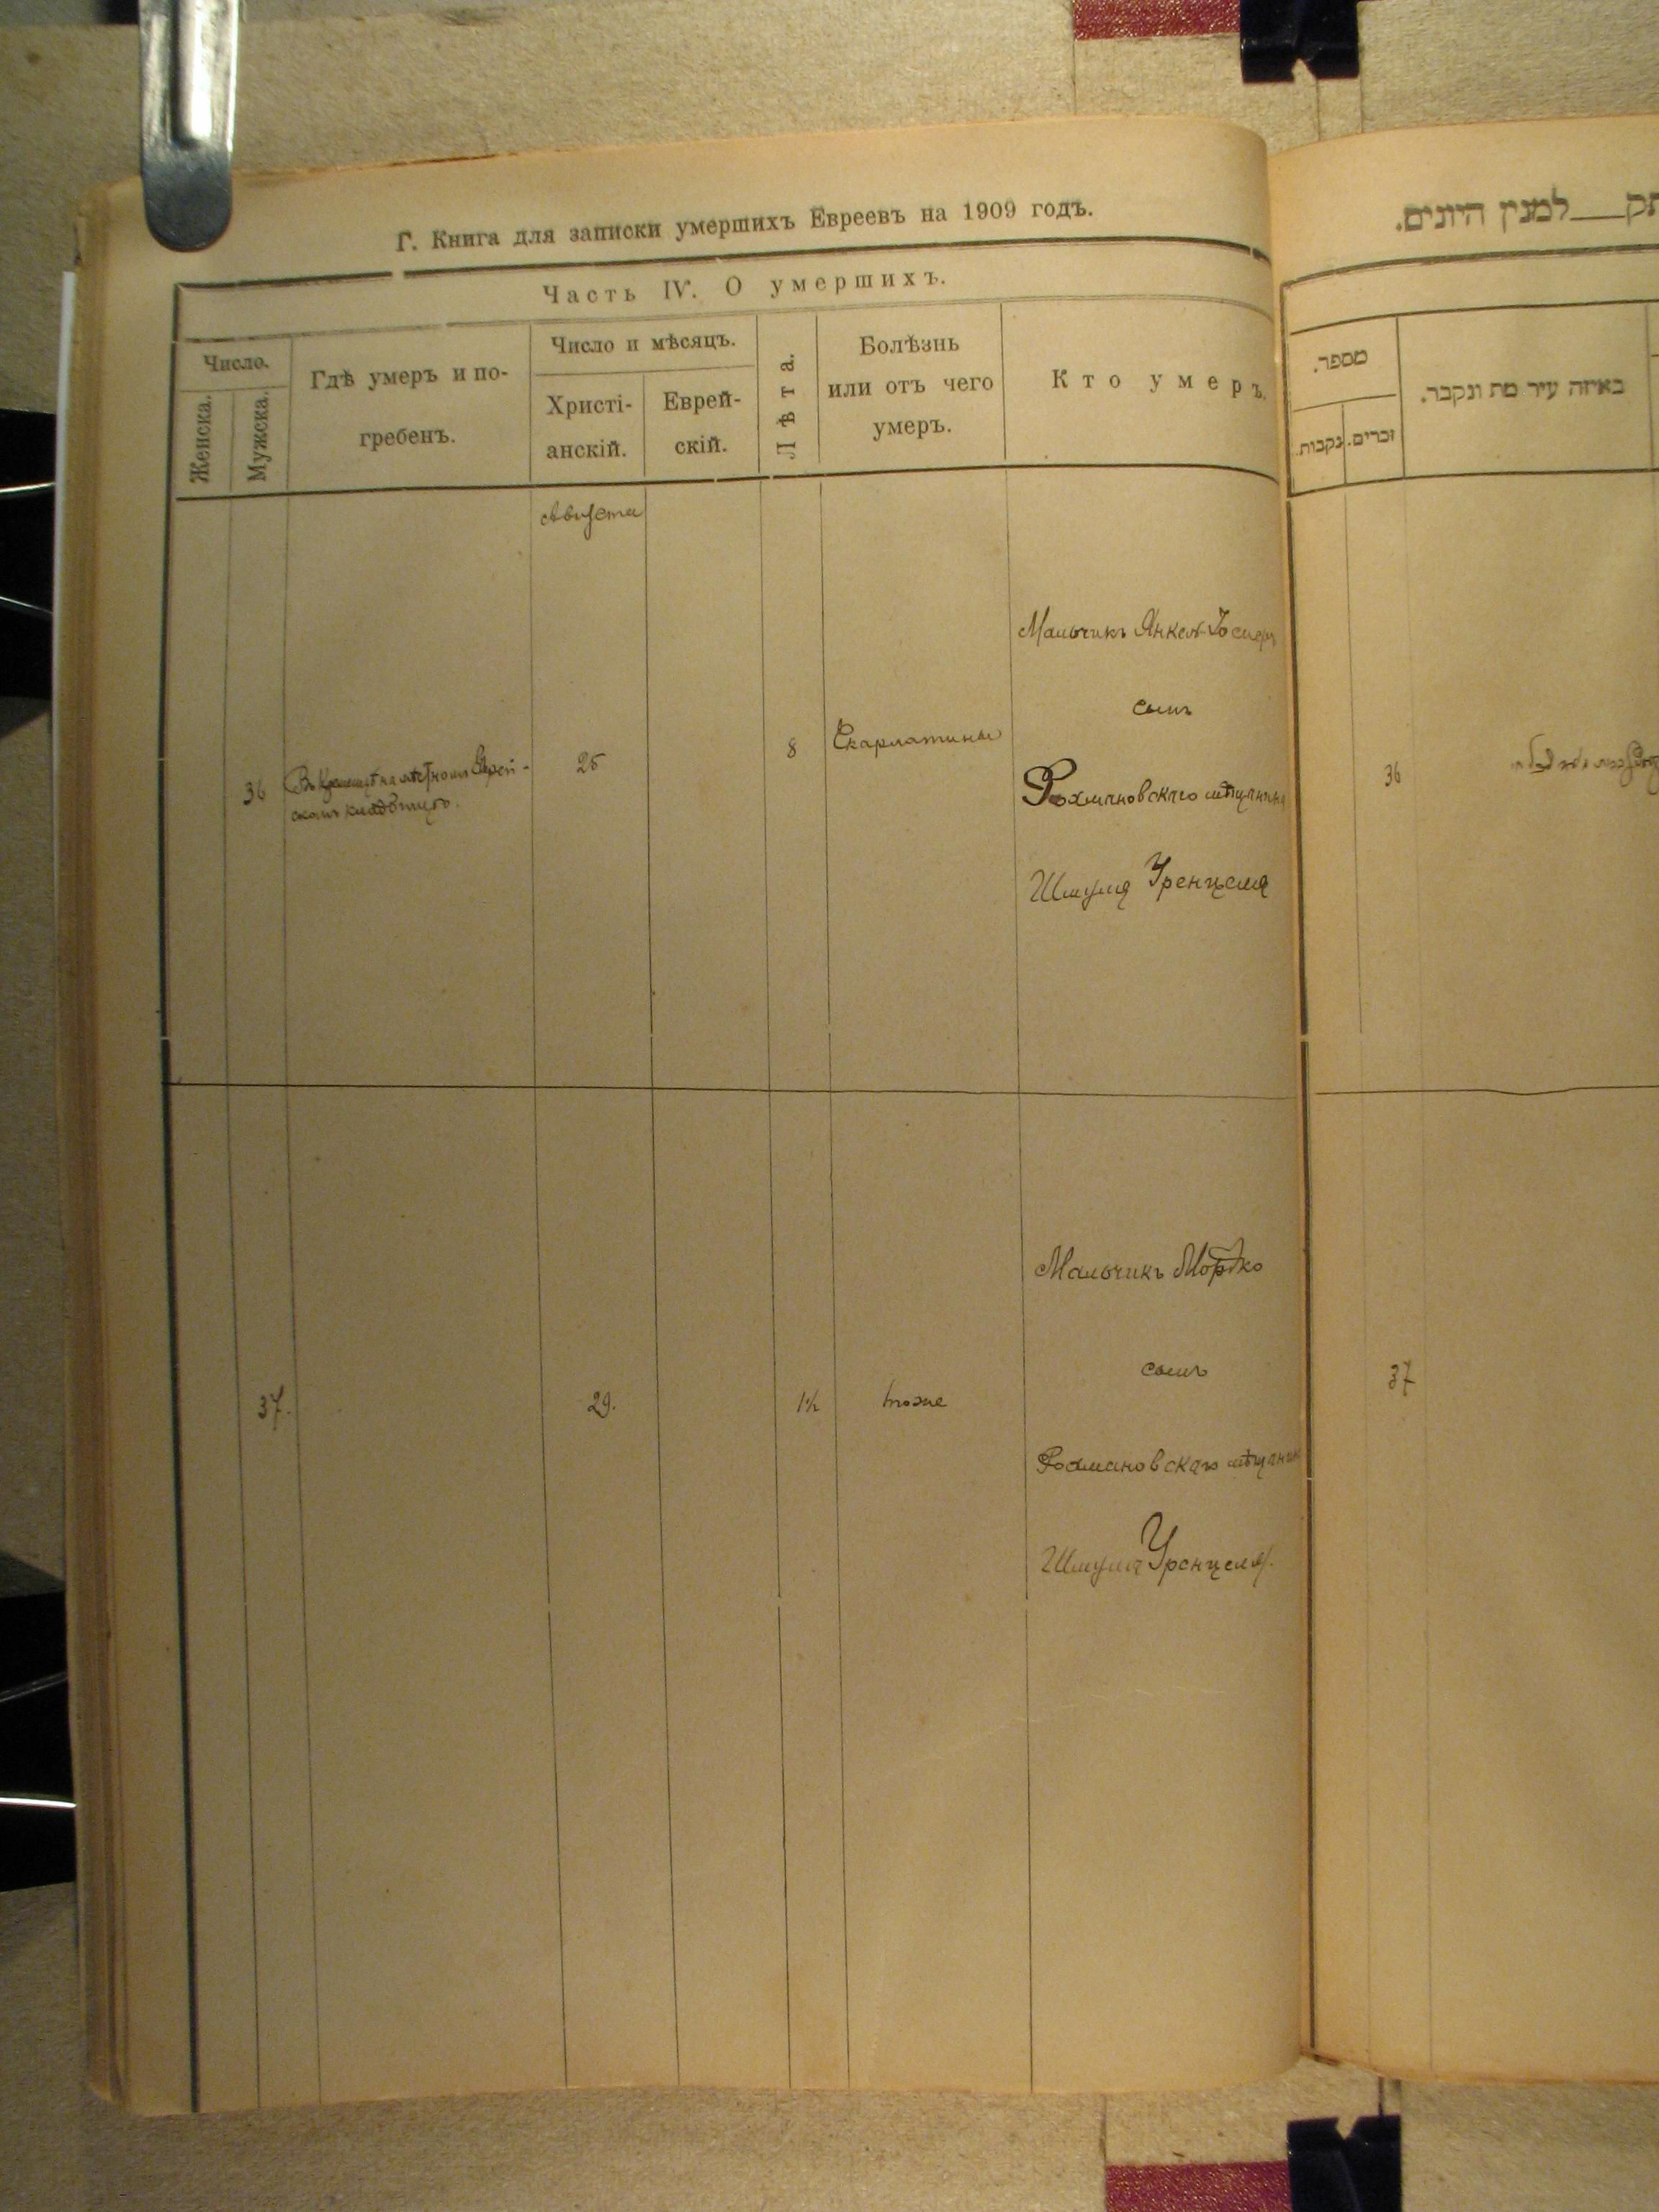 Г. Книга для записки умершихъ Евреевъ на 1909 годъ.
Часть IV. О умершихъ.
Число.
Женска.
Мужска.
Гдѣ умеръ и по-
гребенъ.
Число и мѣсяцъ.
Христі-
анскій.
Еврей-
скій.
Лѣта.
Болѣзнь
или отъ чего
умеръ.
Кто умеръ.
Августа
36
на мѣстномъ Еврей-
скомъ кладбищѣ.
8
Скарлатины
Мальчикъ Янкель-Іосифъ
сынъ
Рахмановскаго мѣщанина
Шмуля Уренцеля
37.
29.
1½
тоже
Мальчикъ Мордко
сынъ
Рахмановскаго мѣщанина
Шмуля Уренцеля.
למנין היונים.
מספר.
נקבות.
זכרים.
באיזה עיר מת ונקבר.
36
37